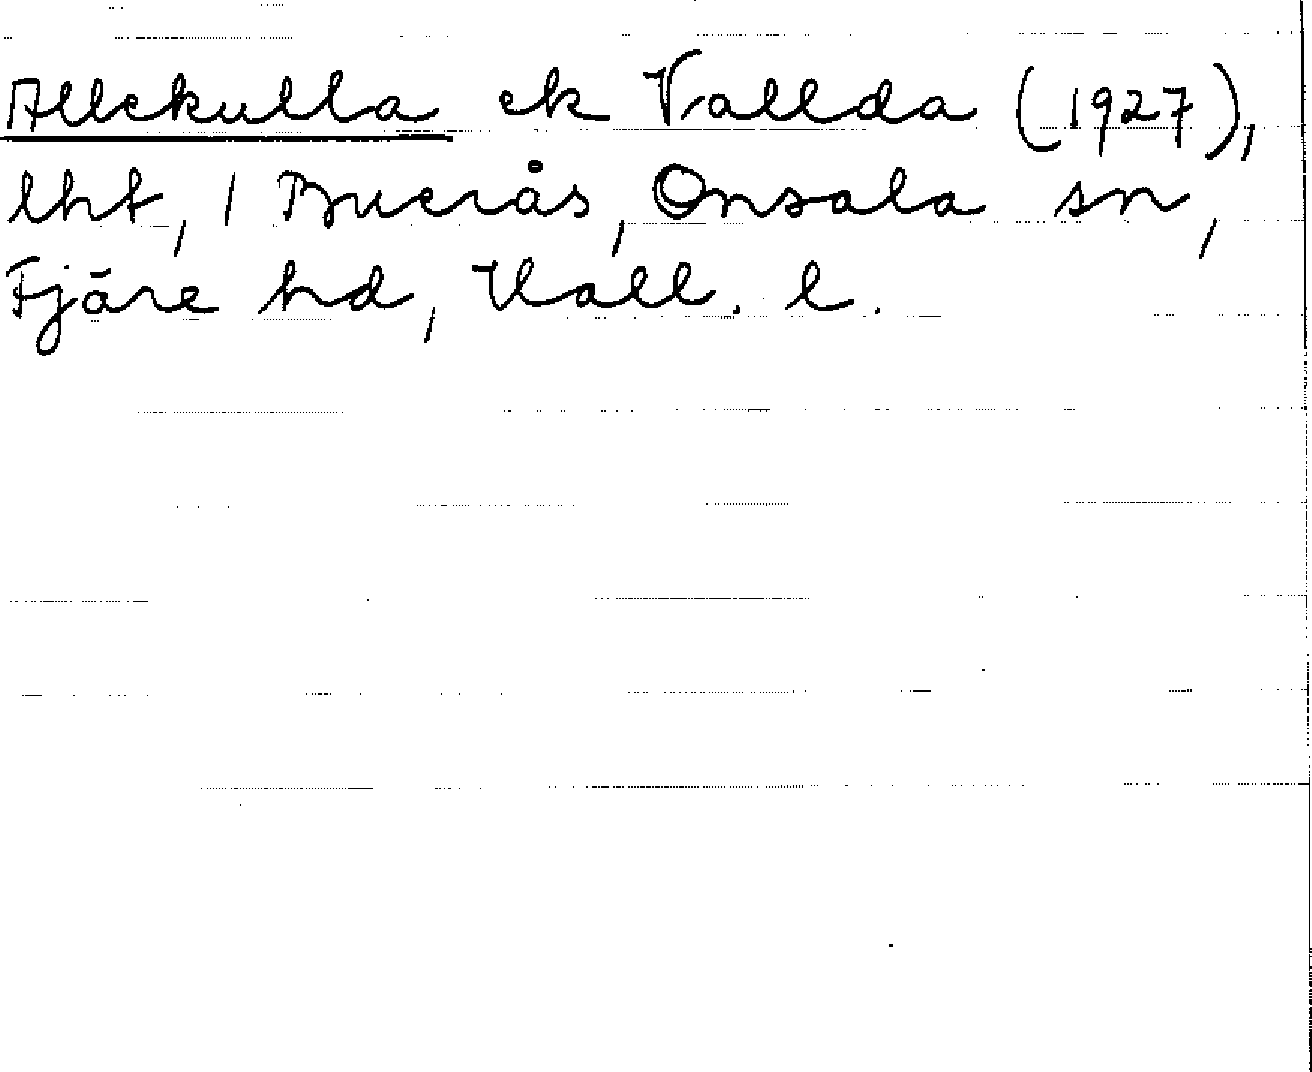 Allekulla ek Vallda (1927),
lht, 1 Buerås, Onsala sn,
Fjäre hd, Hall. l.